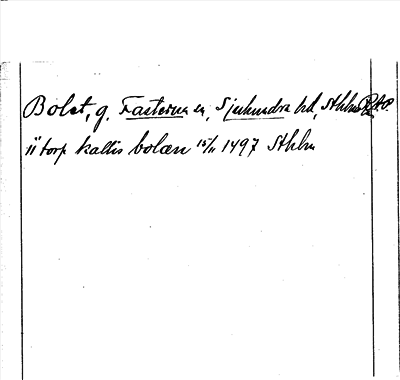 Bolet, g. Fasterna sn, Sjuhundra hd, Sthlms
ii torp kallis bolæn 15/11 1497 Sthlm